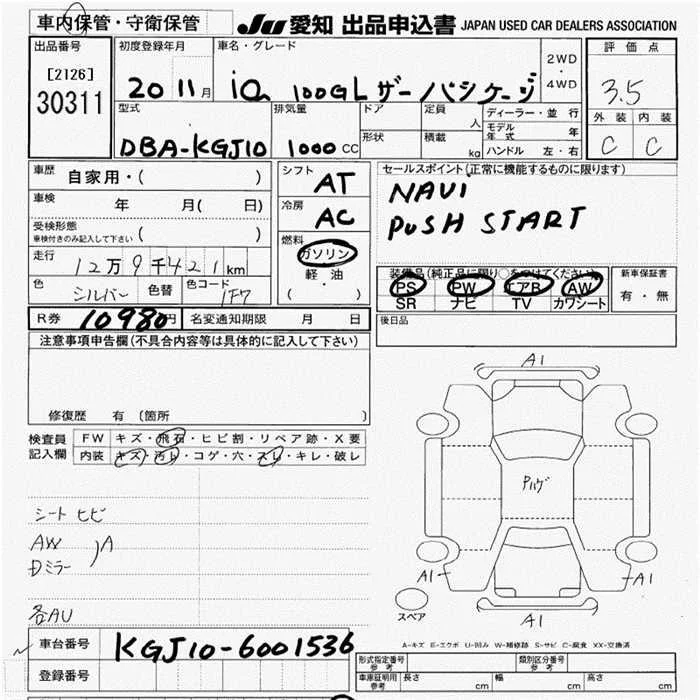 車内保管・守衛保管
JU 愛知 出品申込書 JAPAN USED CAR DEALERS ASSOCIATION
出品番号
[2126]
30311
初度登録年月
20 11月
車名・グレード
iQ 100G Lザーパッケージ
2WD
・
4WD
評価点
3.5
外装 内装
C C
型式
DBA-KGJ10
排気量
1000 CC
ドア
形状
定員
人
積載
kg
ディーラー・並行
モデル年式 年
ハンドル 左・右
車歴 自家用・( )
車検 年 月( 日)
受検形態
車検付きのみ記入して下さい ( )
走行 12万9千421km
色 シルバー 色替 色コード 1F7
シフト AT
冷房 AC
燃料
ガソリン
軽油
( ・ )
セールスポイント(正常に機能するものに限ります)
NAVi
PuSH START
装備品(純正品に限り○をつけてください)
PS PW エアB AW
SR ナビ TV カワシート
新車保証書
有・無
R券 10980円 名変通知期限 月 日
後日品
注意事項申告欄(不具合内容等は具体的に記入して下さい)
修復歴 有 (箇所 )
検査員記入欄
FW キズ・飛石・ヒビ割・リペア跡・X要
内装 キズ・汚レ・コゲ・穴・スレ・キレ・破レ
シート ヒビ
AW
Dミラー
)A
各AU
A1
Pハゲ
A1
A1
A1
スペア
A-キズ E-エクボ U-凹み W-補修跡 S-サビ C-腐食 XX-交換済
車台番号 KGJ10-6001536
登録番号
形式指定番号 参考
類別区分番号 参考
車庫証明用 参考 長さ cm 幅 cm 高さ cm